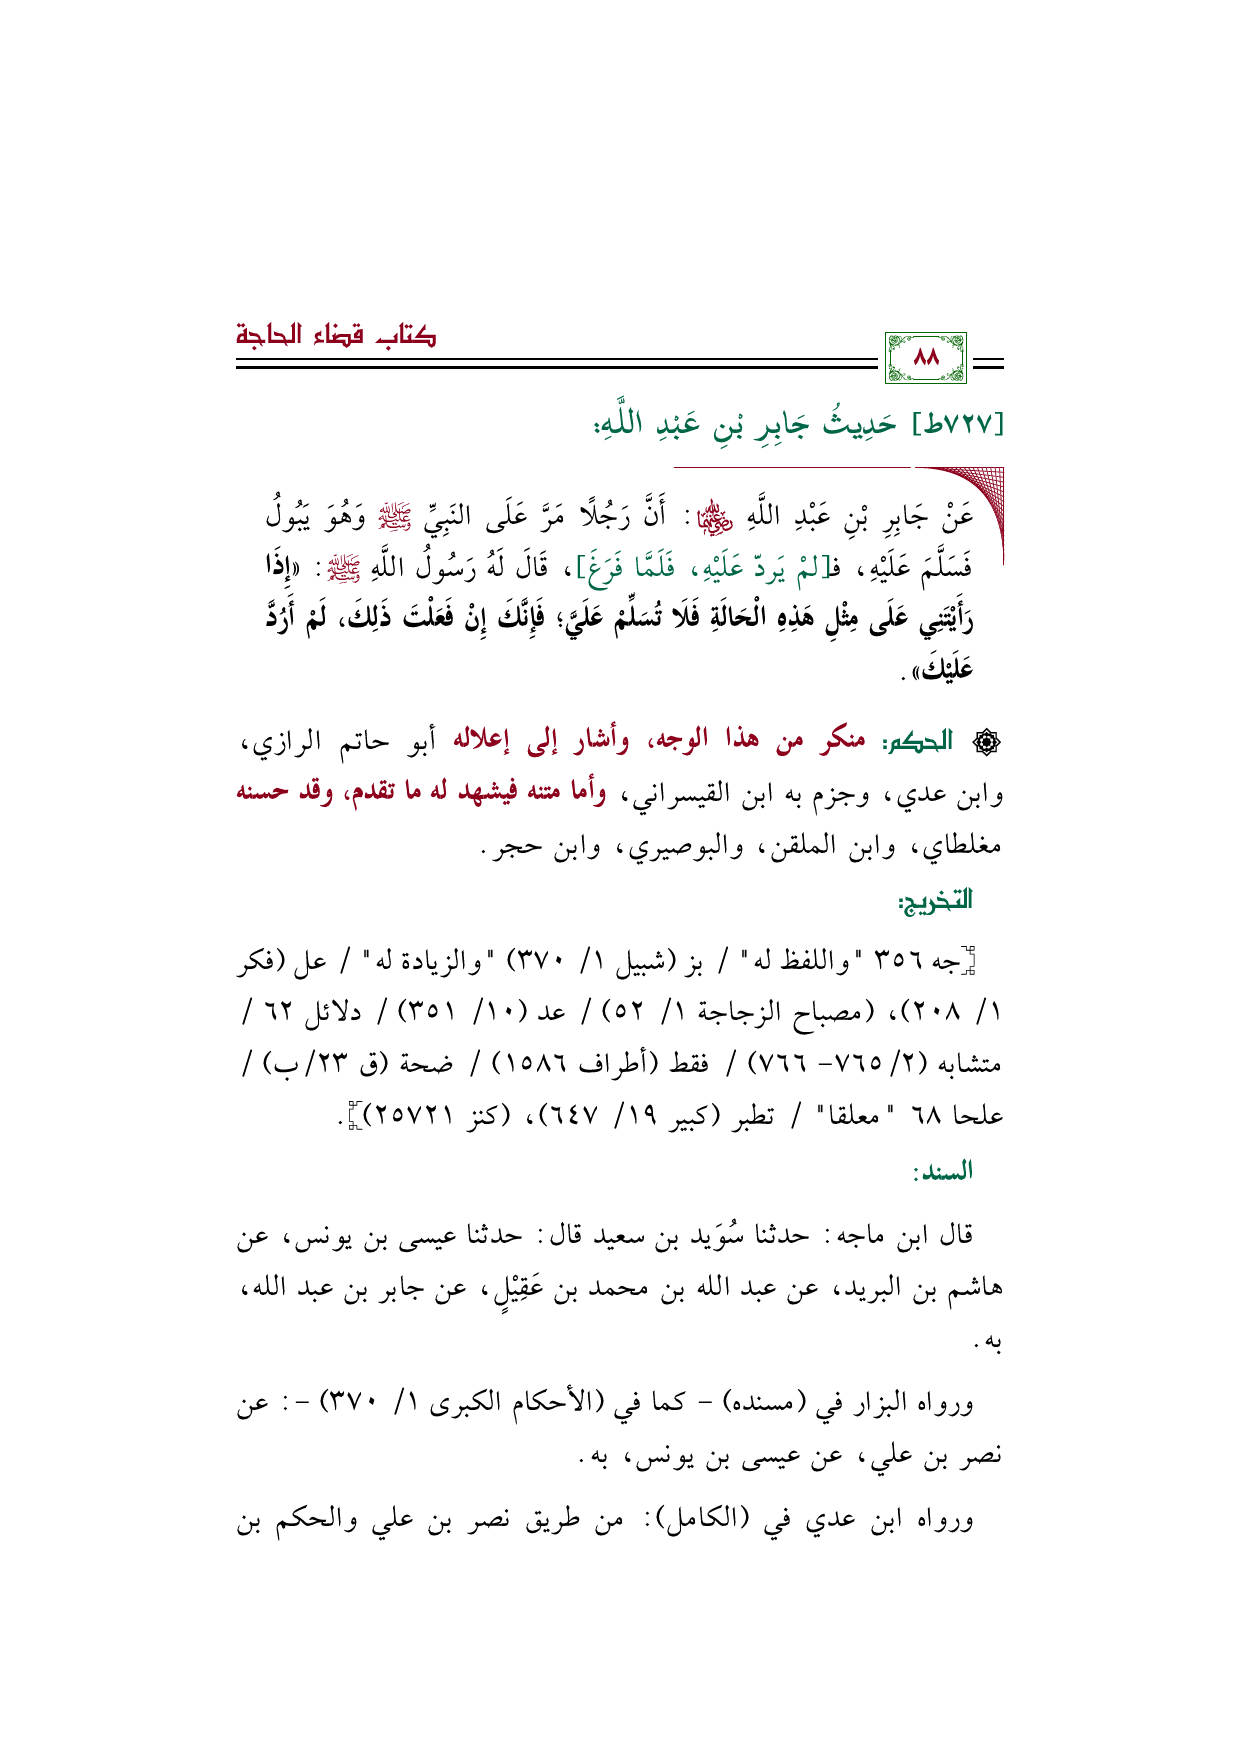 كتاب قضاء الحاجة
٨٨
[٧٢٧ط] حَدِيثُ جَابِرِ بْنِ عَبْدِ اللَّهِ:
عَنْ جَابِرِ بْنِ عَبْدِ اللَّهِ رضي الله عنهما: أَنَّ رَجُلًا مَرَّ عَلَى النَبِيِّ ﷺ وَهُوَ يَبُولُ
فَسَلَّمَ عَلَيْهِ، فـ[لمْ يَردّ عَلَيْهِ، فَلَمَّا فَرَغَ]، قَالَ لَهُ رَسُولُ اللَّهِ ﷺ: «إِذَا
رَأَيْتَنِي عَلَى مِثْلِ هَذِهِ الْحَالَةِ فَلَا تُسَلِّمْ عَلَيَّ؛ فَإِنَّكَ إِنْ فَعَلْتَ ذَلِكَ، لَمْ أَرُدَّ
عَلَيْكَ».
الحكم: منكر من هذا الوجه، وأشار إلى إعلاله أبو حاتم الرازي،
وابن عدي، وجزم به ابن القيسراني، وأما متنه فيشهد له ما تقدم، وقد حسنه
مغلطاي، وابن الملقن، والبوصيري، وابن حجر.
التخريج:
[جه ٣٥٦ "واللفظ له" / بز (شبيل ١/ ٣٧٠) "والزيادة له" / عل (فكر
١/ ٢٠٨)، (مصباح الزجاجة ١/ ٥٢) / عد (١٠/ ٣٥١) / دلائل ٦٢ /
متشابه (٢/ ٧٦٥– ٧٦٦) / فقط (أطراف ١٥٨٦) / ضحة (ق ٢٣/ ب) /
علحا ٦٨ "معلقا" / تطبر (كبير ١٩/ ٦٤٧)، (كنز ٢٥٧٢١)].
السند:
قال ابن ماجه: حدثنا سُوَيد بن سعيد قال: حدثنا عيسى بن يونس، عن
هاشم بن البريد، عن عبد الله بن محمد بن عَقِيْلٍ، عن جابر بن عبد الله،
به.
ورواه البزار في (مسنده) – كما في (الأحكام الكبرى ١/ ٣٧٠) –: عن
نصر بن علي، عن عيسى بن يونس، به.
ورواه ابن عدي في (الكامل): من طريق نصر بن علي والحكم بن